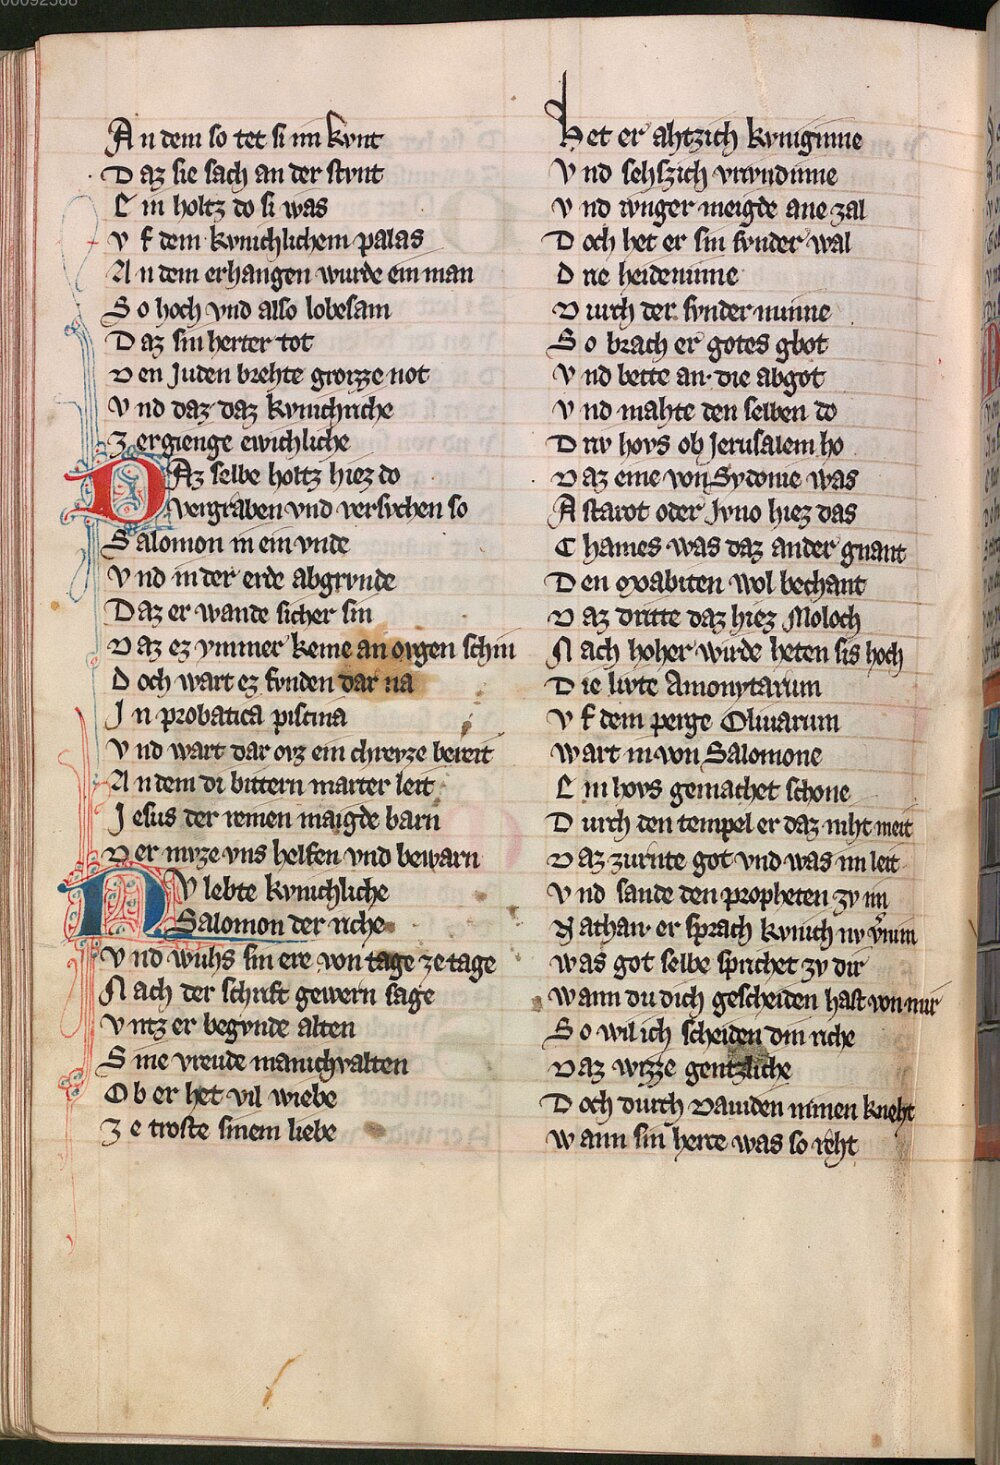 00092588
An dem so tet si im kvnt
Daz sie sach an der stvnt
Ein holtz do si was
Vf dem kvnichlichem palas
An dem erhangen wurde ein man
So hoch vnd also lobesam
Daz sin herter tot
Den Juden brehte grozze not
Vnd daz daz kvnichriche
Zergienge ewichliche
Daz selbe holtz hiez do
vergraben vnd versvchen so
Salomon in ein vnde
Vnd in der erde abgrvnde
Daz er wande sicher sin
Daz ez ymmer keine an ovgen schin
Doch wart ez fvnden dar na
In probatica piscina
Vnd wart dar ovz ein chrevze bereit
An dem di bittern marter leit
Jesus der reinen maigde barn
Der mvze vns helfen vnd bewarn
Nv lebte kvnichliche
Salomon der riche
Vnd wuhs sin ere von tage ze tage
Nach der schrift gewern sage
Vntz er begvnde alten
Sine vreude manichvalten
Ob er het vil wiebe
Ze troste sinem liebe
Het er ahtzich kvniginne
Vnd sehszich vrivndinne
Vnd ivnger meigde ane zal
Doch het er sin svnder wal
Drie heideninne
Durch der svnder minne
So brach er gotes gbot
Vnd bette an die abgot
Vnd mahte den selben do
Driv hovs ob Jerusalem ho
Daz eine von Sydonie was
Astarot oder Jvno hiez das
Chames was daz ander gnant
Den Moabiten wol bechant
Daz dritte daz hiez Moloch
Nach hoher wirde heten sis hoch
Die livte Amonytarum
Vf dem perge Oliuarum
Wart in von Salomone
Ein hovs gemachet schone
Durch den tempel er daz niht meit
Daz zurnte got vnd was im leit
Vnd sande den propheten zv im
Nathan er sprach kvnich nv vernim
Was got selbe sprichet zv dir
Wann du dich gescheiden hast von mir
So wil ich scheiden din riche
Daz wizze gentzliche
Doch durch Dauiden minen kneht
Wann sin herce was so reht